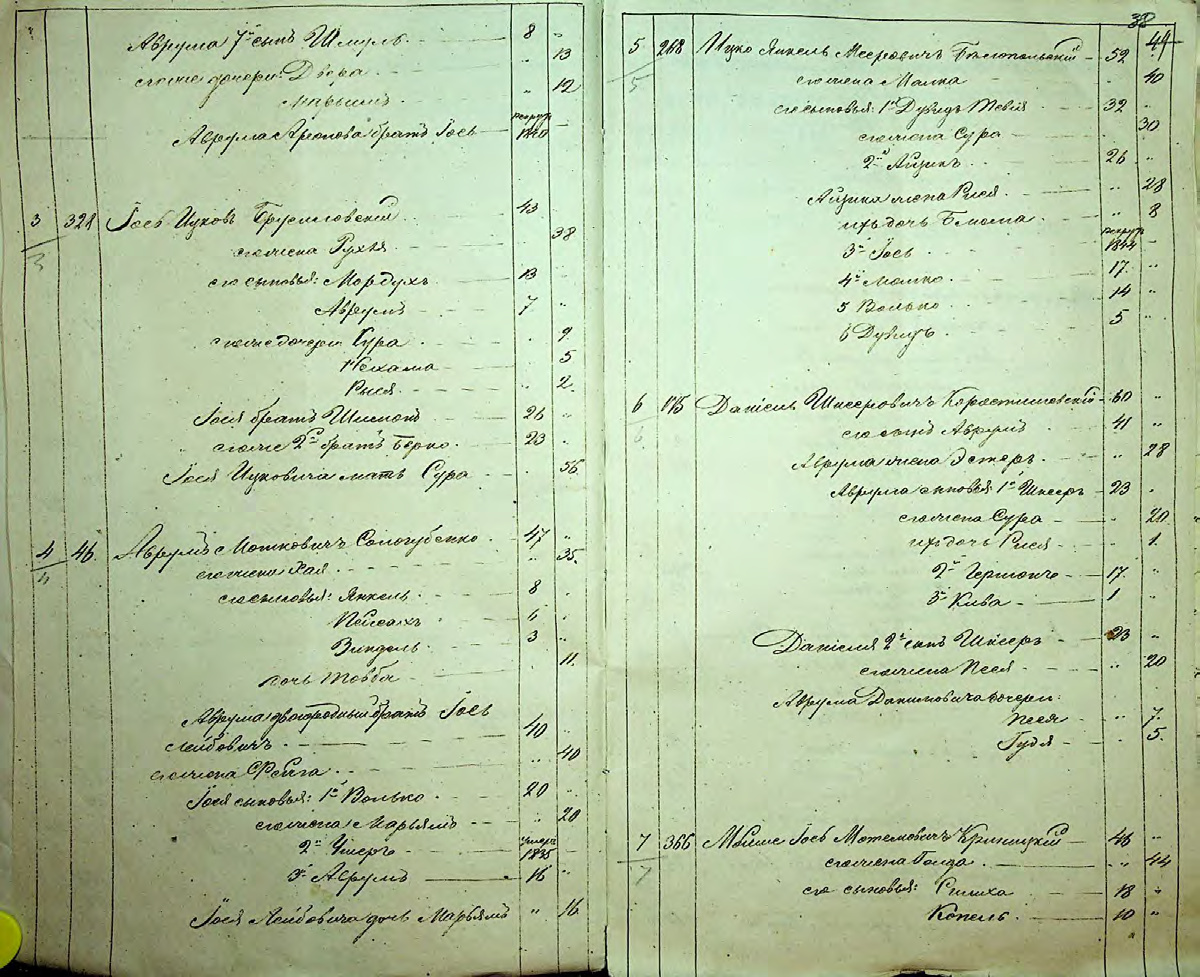 Аврума 7й сынъ Шмуль 8 "
его же дочери: Двера " 13
Марьямъ " 12
Аврума Аронова братъ Іось рекрут 1840
3 328 Іось Ицковъ Брусиловскій 43
его жена Рухля 38
его сыновья: Мордухъ 13
Аврумъ 7 "
его же дочери Сура 9
Нехама 5
Рися 2
Іося братъ Шимонъ 26 "
его же 2й братъ Берко 23
Іося Ицковича мать Сура 56
4 46 Аврумъ Мошковичъ Сологубенко 47 "
его жена Хая " 35
его сыновья: Янкель 8
Пейсахъ 6
Зиндель 3 "
дочь Товба 11
Аврума двоюродный братъ Іось
Лейбовичъ 40 "
его жена Фейга " 40
Іося сыновья: 1й Волько 20 "
его жена Марьямъ " 20
2й Ушеръ умеръ 1835
3й Аврумъ 16 "
Іося Лейбовича дочь Марьямъ " 16
38
49
5 268 Ицко Янкель Мееровичъ Белопольскій 52
его жена Малка 40
его сыновья: 1й Дувидъ Тевія 32 "
его жена Сура 30
2й Айзикъ 26 "
Айзика жена Рися " 28
ихъ дочь Блюма " 8
3й Іось рекрут 1844
4й Мошко 17 "
5 Волько 14 "
6 Дувидъ 5 "
6 175 Даніель Шнееровичъ Коростишевскій 60 "
его сынъ Аврумъ 41 "
Аврума жена Эстеръ " 28
Аврума сыновья: 1й Шнееръ 23
его жена Сура " 20
ихъ дочь Рися 1
2й Гершонъ 17 "
3й Кива 1 "
Даніеля 2й сынъ Шнееръ 23 "
его жена Песя " 20
Аврума Даниловича дочери:
Песя " 7
Гудя 5
7 366 Мойше Іось Мотелевичъ Криницкій 46 "
его жена Голда " 44
его сыновья: Симха 18 "
Копель 10 "